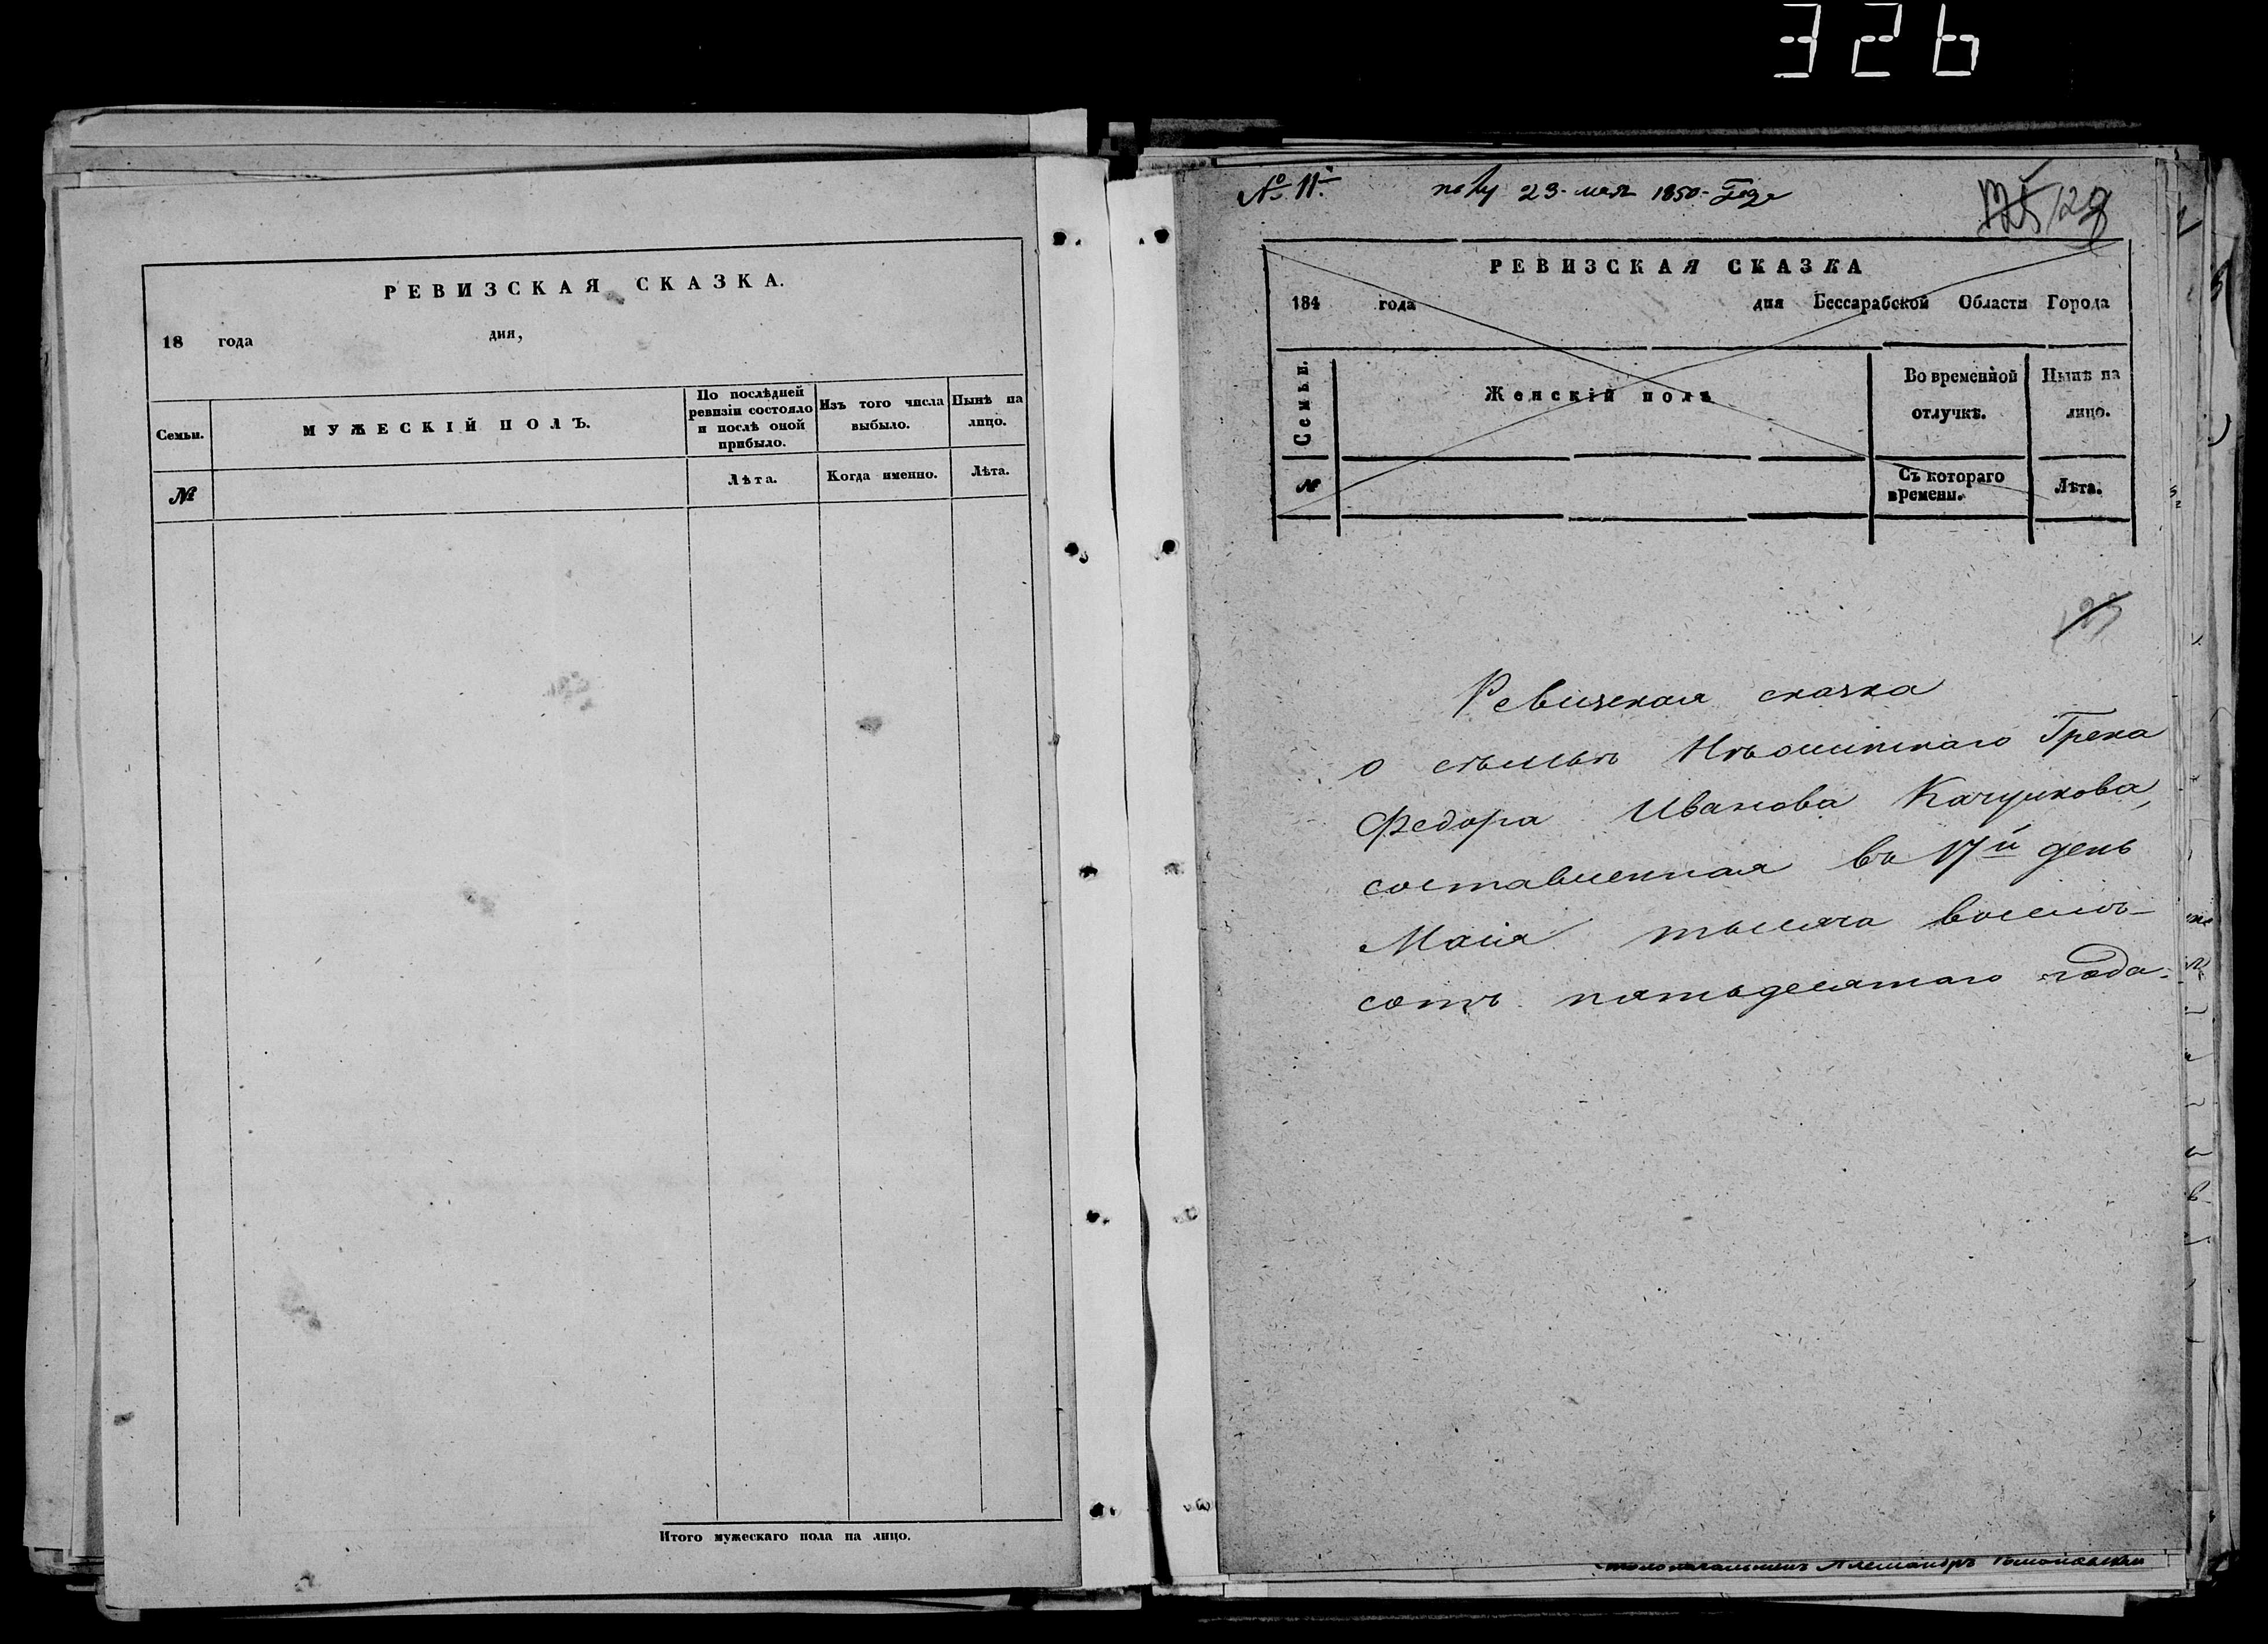 326
РЕВИЗСКАЯ СКАЗКА.
18 года дня,
Семьи.
МУЖЕСКІЙ ПОЛЪ.
По послѣдней ревизіи состояло и послѣ оной прибыло.
Изъ того числа выбыло.
Нынѣ на лицо.
№
Лѣта.
Когда именно.
Лѣта.
Итого мужескаго пола на лицо.
№ 11.
23 мая 1850 года
125 128
РЕВИЗСКАЯ СКАЗКА
184 года дня Бессарабской Области Города
Семьи.
Женскій полъ
Во временной отлучкѣ.
Нынѣ на лицо.
№
Съ котораго времени.
Лѣта.
Ревизская сказка
о семьѣ Грека
Федора Иванова
составленная въ 17й день
Маія тысяча восемь-
сотъ пятьдесятаго года.
Столоначальникъ Александръ